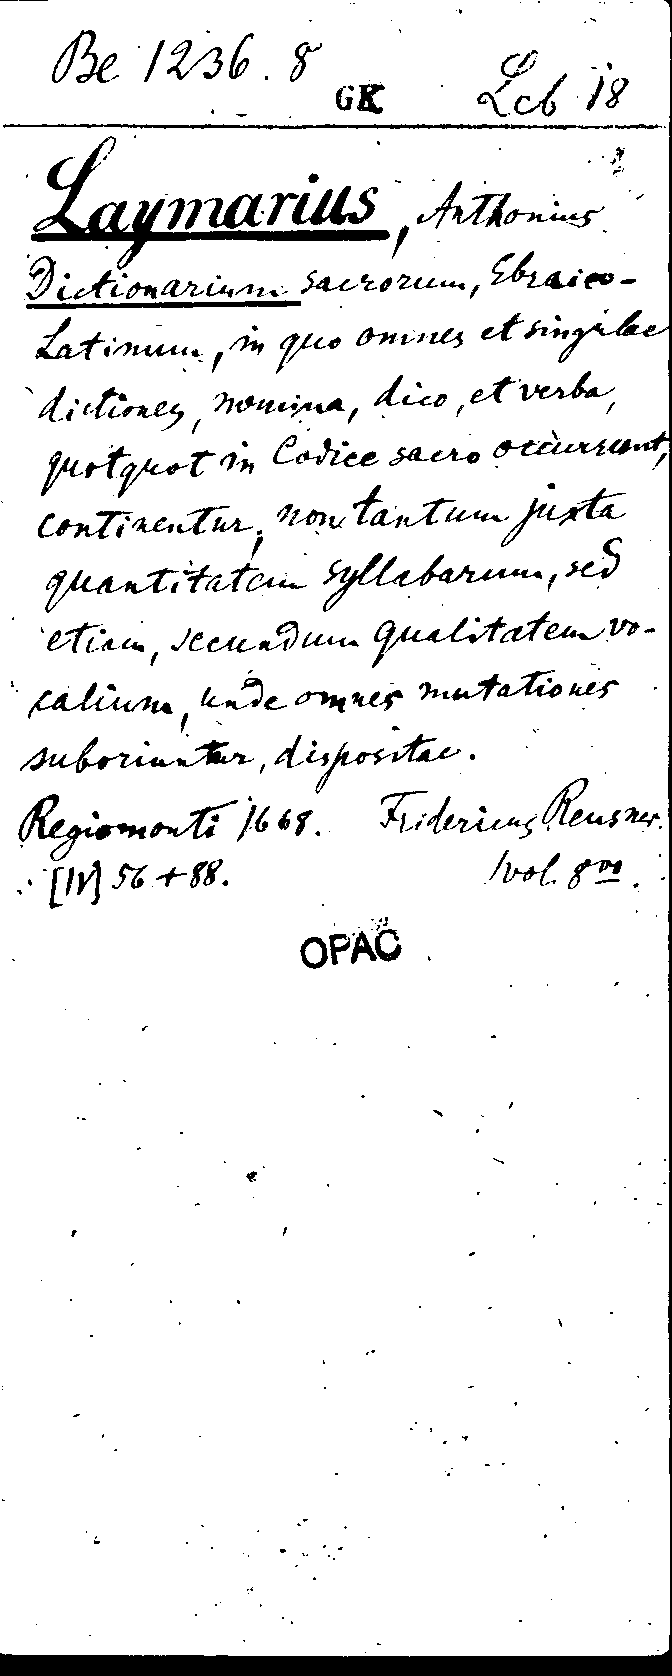 Be 1236.8
GK Leb 18
Laymarius, Anthonius
Dictionarium sacrorum, Ebraico-
Latinum, in quo omnes et singulae
dictiones, nomina, dico, et verba,
quotquot in Codice sacro occurrunt,
continentur, non tantum juxta
quantitatem syllabarum, sed
etiam, secundum qualitatem vo-
calium, unde omnes mutationes
suboriuntur, dispositae.
Regiomonti 1668. Fridericus Reusner.
[IV] 56 + 88. 1 vol. 8vo.
OPAC